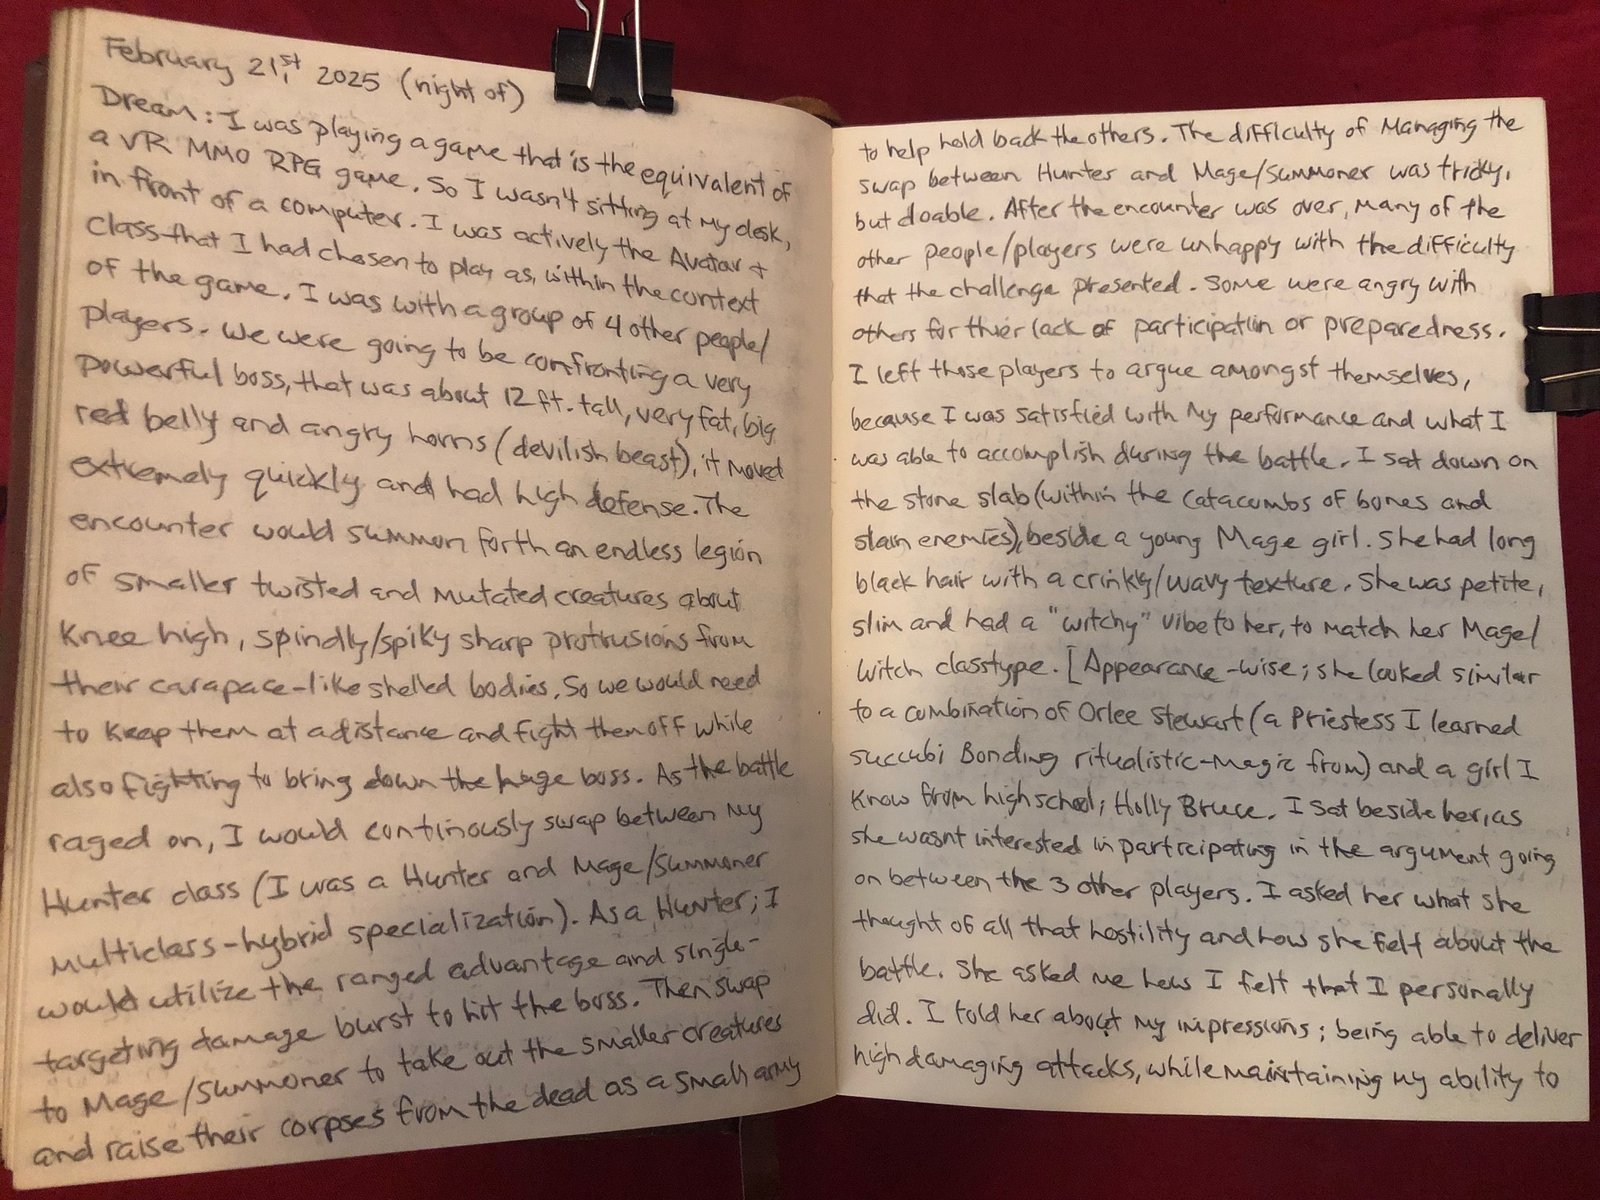 February 21st, 2025 (night of)
Dream: I was playing a game that is the equivalent of
a VR MMO RPG game. So I wasn't sitting at my desk,
in front of a computer. I was actively the Avatar +
Class that I had chosen to play as, within the context
of the game. I was with a group of 4 other people/
players. We were going to be confronting a very
powerful boss, that was about 12 ft. tall, very fat, big
red belly and angry horns (devilish beast), it moved
extremely quickly and had high defense. The
encounter would summon forth an endless legion
of smaller twisted and mutated creatures about
Knee high, spindly/spiky sharp protrusions from
their carapace-like shelled bodies. So we would need
to keep them at a distance and fight them off while
also fighting to bring down the huge boss. As the battle
raged on, I would continously swap between my
Hunter class (I was a Hunter and Mage/Summoner
multiclass-hybrid specialization). As a Hunter; I
would utilize the ranged advantage and single-
targeting damage burst to hit the boss. Then swap
to Mage/Summoner to take out the smaller creatures
and raise their corpses from the dead as a small army
to help hold back the others. The difficulty of Managing the
swap between Hunter and Mage/Summoner was tricky,
but doable. After the encounter was over, many of the
other people/players were unhappy with the difficulty
that the challenge presented. Some were angry with
others for thier lack of participation or preparedness.
I left those players to argue amongst themselves,
because I was satisfied with my performance and what I
was able to accomplish during the battle. I sat down on
the stone slab (within the catacombs of bones and
slain enemies), beside a young Mage girl. She had long
black hair with a crinkly/wavy texture. She was petite,
slim and had a "witchy" vibe to her, to match her Mage/
Witch classtype. [Appearance-wise; she looked similar
to a combination of Orlee Stewart (a Priestess I learned
succubi Bonding ritualistic-Magic from) and a girl I
know from highschool; Holly Bruce. I sat beside her, as
she wasnt interested in participating in the argument going
on between the 3 other players. I asked her what she
thought of all that hostility and how she felt about the
battle. She asked me how I felt that I personally
did. I told her about my impressions; being able to deliver
high damaging attacks, while maintaining my ability to